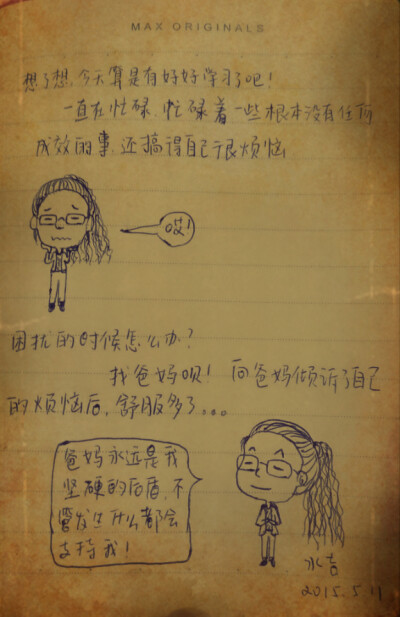 MAX ORIGINALS
想了想,今天算是有好好学习了吧!
一直在忙碌,忙碌着一些根本没有任何
成效的事,还搞得自己很烦恼
哎!
困扰的时候怎么办?
找爸妈呗! 向爸妈倾诉了自己
的烦恼后,舒服多了...
爸妈永远是我
坚硬的后盾,不
管发生什么都会
支持我!
水吉
2015.5.11